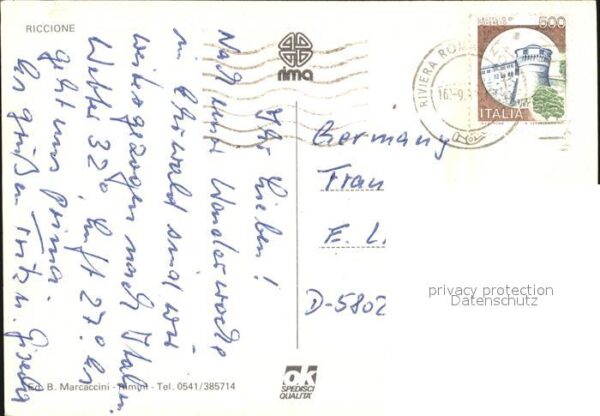 RICCIONE
rima
Ihr Lieben!
Nach unsrer Wanderwoche
im sind wir
weitergezogen nach Italien.
Wetter 32°, Luft 27°. Es
geht uns prima.
Es grüßen Fritz u. Gisela
Germany
Frau
E. L.
D-5802
500
ITALIA
RIVIERA ROMA
16-9
privacy protection
Datenschutz
Ed. B. Marcaccini - Rimini - Tel. 0541/385714
OK
SPEDISCI
QUALITÀ